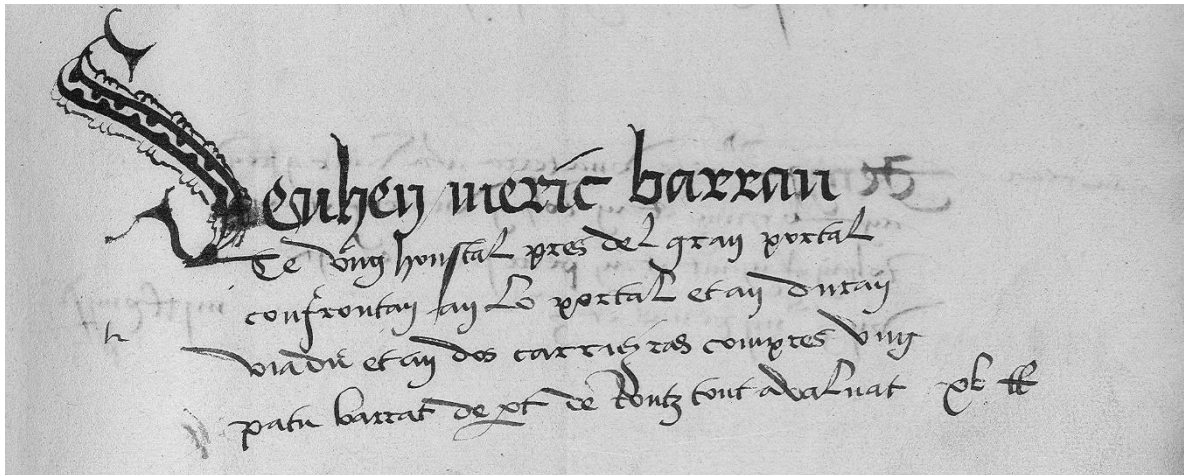 meric barran
Te ung houstal pres del gran portal
confrontan an lo portal et an duran
viadu et an dos carrieras compres ung
patu barrat de pt de tout avaluat